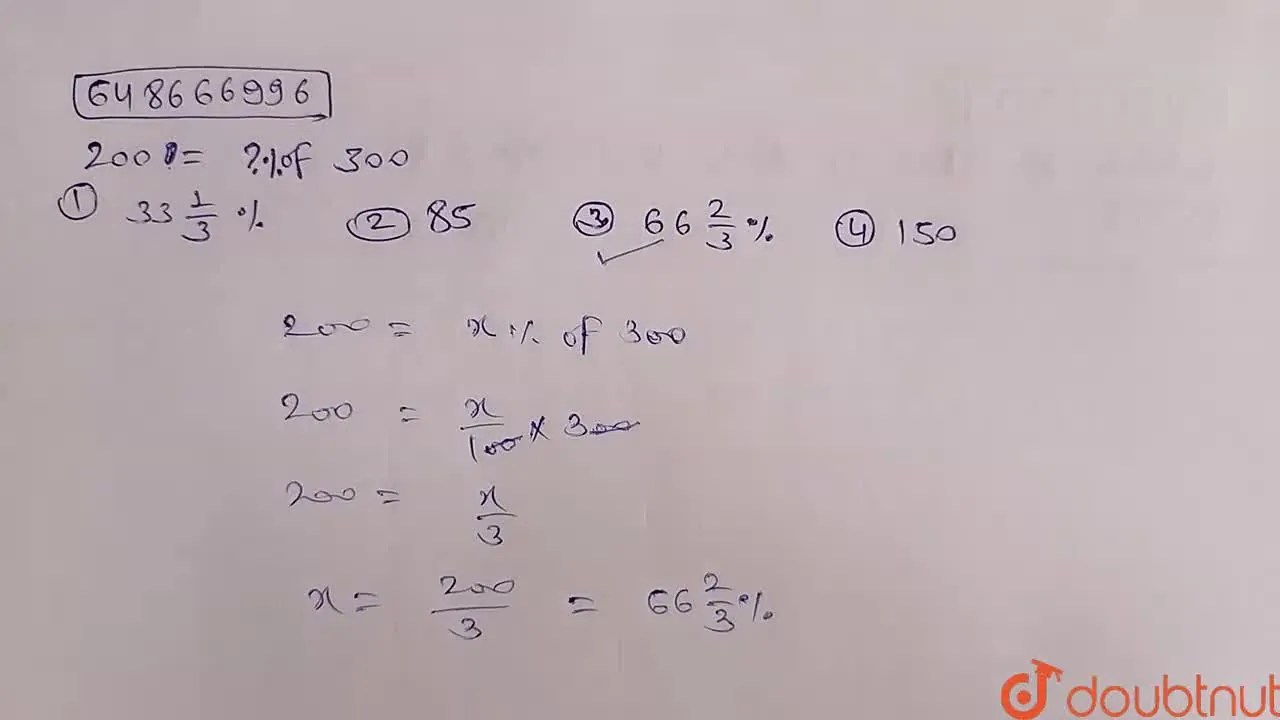 648666996
200 = ?% of 300
① 33 1/3 % ② 85 ③ 66 2/3 % ④ 150
200 = x% of 300
200 = x/100 × 300
200 = x/3
x = 200/3 = 66 2/3 %
doubtnut